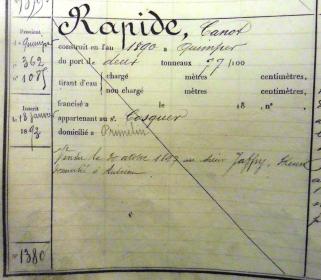 Rapide, Canot
Provient
construit en l'an 1890 a Quimper
à Quimper
fo 362
du port de deux tonneaux 27/100
no 1085
tirant d'eau chargé mètres centimètres,
non chargé mètres centimètres,
francisé a le 18 , no
Inscrit
appartenant au s. Cosquer
le 18 janvier
1892
domicilié a
Vendu le 30 octobre 1897 au sieur Jaffry,
domicilié à
no 1380